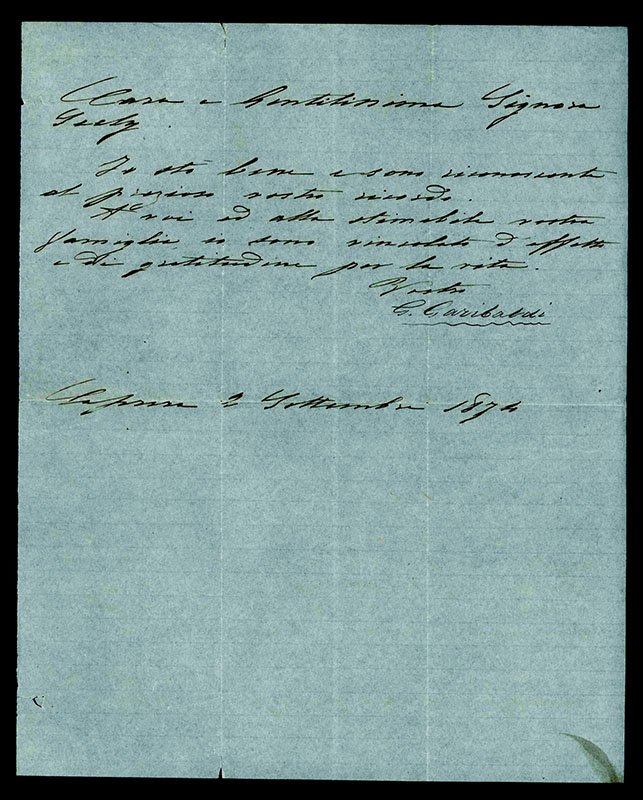 Cara e Gentilissima Signora
Seely
Io sto bene e sono riconoscente
al prezioso vostro ricordo.
A voi ed alla stimabile vostra
famiglia io sono vincolato d'affetto
e di gratitudine per la vita.
Vostro
G. Garibaldi
Caprera 2 Settembre 1874